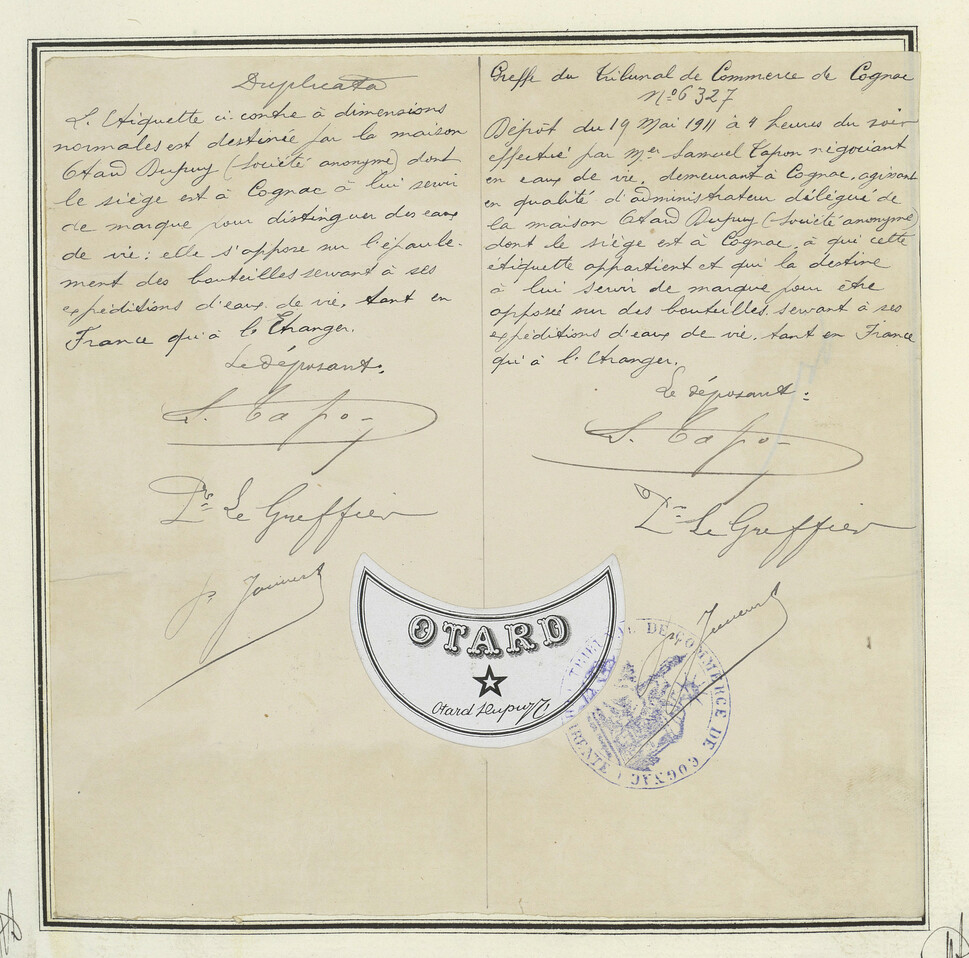 Duplicata
L'Etiquette ci-contre à dimensions
normales est destinée par la maison
Otard Dupuy (Société anonyme) dont
le siège est à Cognac à lui servir
de marque pour distinguer des eaux
de vie; elle s'appose sur l'épaule-
ment des bouteilles servant à ses
expéditions d'eaux de vie, tant en
France qu'à l'Etranger.
Le déposant.
S. Tapo-
Pr Le Greffier
Greffe du Tribunal de Commerce de Cognac
No 6327
Dépôt du 19 Mai 1911 à 4 heures du soir
effectué par Mer Samuel Tapon négociant
en eaux de vie, demeurant à Cognac, agissant
en qualité d'administrateur délégué de
la maison Otard Dupuy (Société anonyme)
dont le siège est à Cognac, à qui cette
étiquette appartient et qui la destine
à lui servir de marque pour être
apposée sur des bouteilles servant à ses
expéditions d'eaux de vie, tant en France
qu'à l'Etranger.
Le déposant:
S. Tapo-
Pr Le Greffier
OTARD
Otard Dupuy
TRIBUNAL DE COMMERCE DE COGNAC